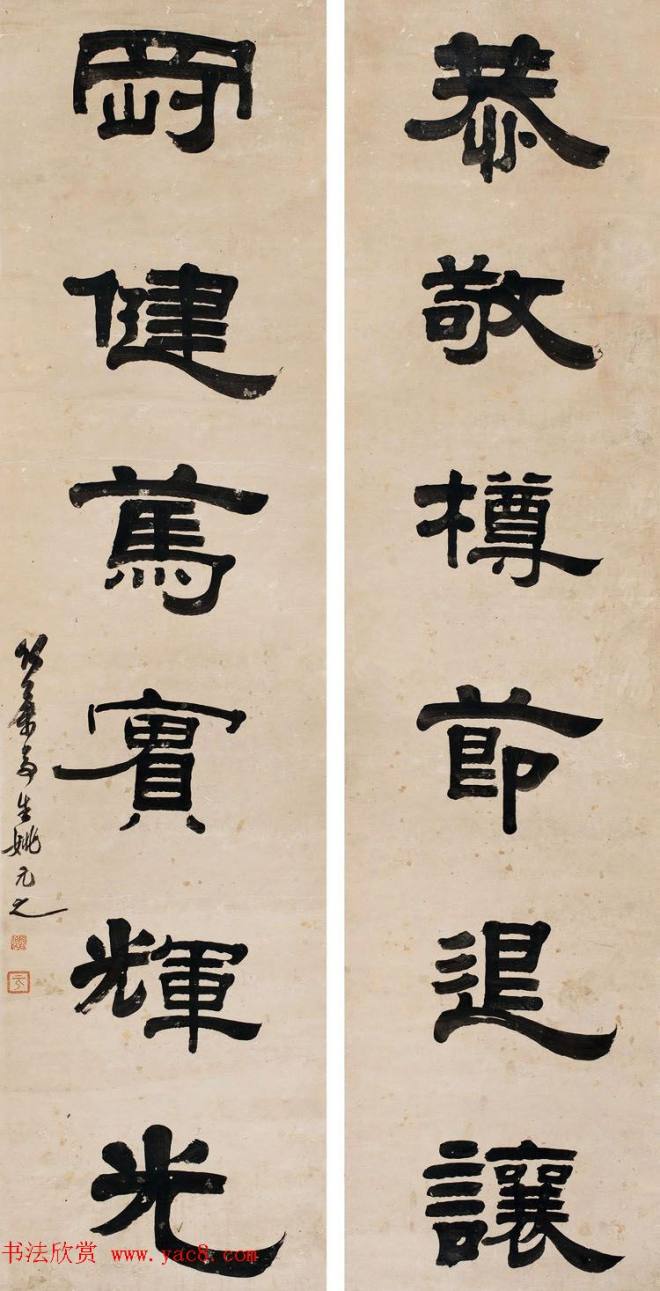 恭敬樽節退讓
剛健篤實輝光
竹葉亭生姚元之
书法欣赏 www.yac8.com